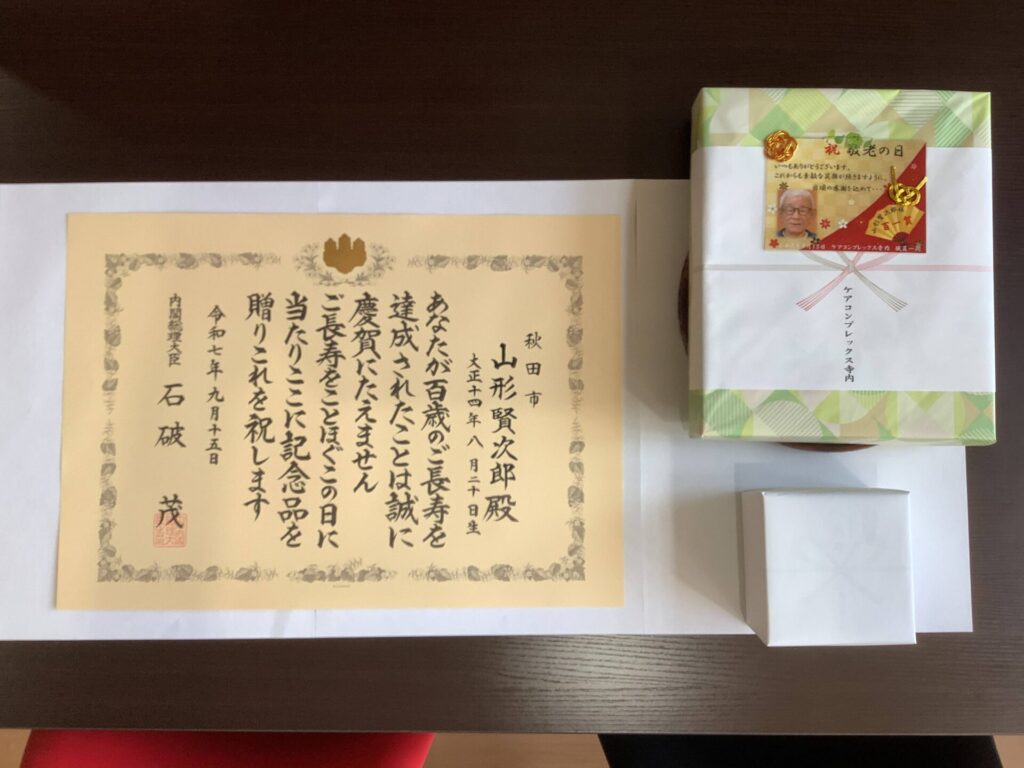 秋田市
山形賢次郎殿
大正十四年八月二十日生
あなたが百歳のご長寿を
達成されたことは誠に
慶賀にたえません
ご長寿をことほぐこの日に
当たりここに記念品を
贈りこれを祝します
令和七年九月十五日
内閣総理大臣 石破 茂
祝 敬老の日
いつもありがとうございます。
これからも素敵な笑顔が続きますように。
日頃の感謝を込めて・・・
ケアコンプレックス寺内 職員一同
ケアコンプレックス寺内